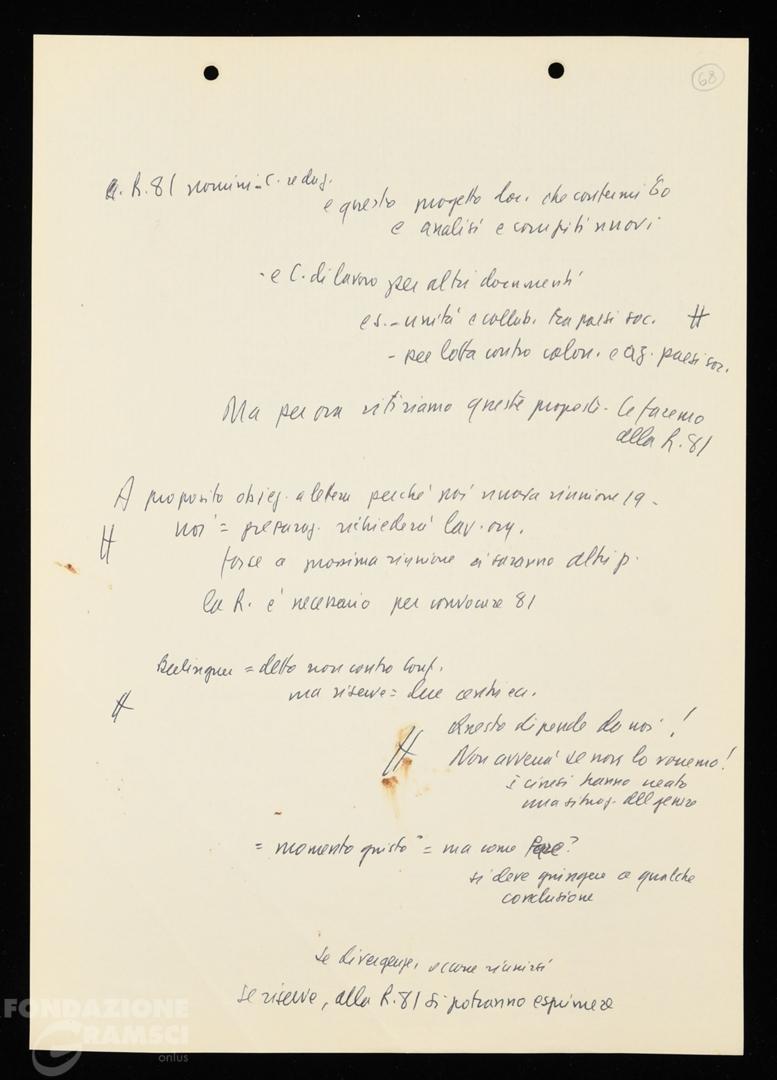 68
R. 81 nomini C. redaz.
e questo progetto doc. che contermi 60
e analisi e compiti nuovi
- e C. di lavoro per altri documenti
es. - unità e collab. tra paesi soc. #
- per lotta contro colon. e ag. paesi soc.
Ma per ora ritiriamo queste proposte. Le faremo
alla R. 81
A proposito obiez. a lettera perché noi nuova riunione 19 -
noi = preparaz. richiederà lav. org.
#
forse a prossima riunione ci saranno altri p.
la R. è necessario per convocare 81
Berlinguer = detto non contro Conf.
ma riserve = due centri ecc.
#
Questo dipende da noi!
# Non avverrà se non lo vorremo!
I cinesi hanno creato
una situaz. del genere
= momento giusto = ma come fare?
si deve giungere a qualche
conclusione
Se divergenze, occorre riunirsi
Se riserve, alla R. 81 si potranno esprimere
FONDAZIONE
GRAMSCI
onlus